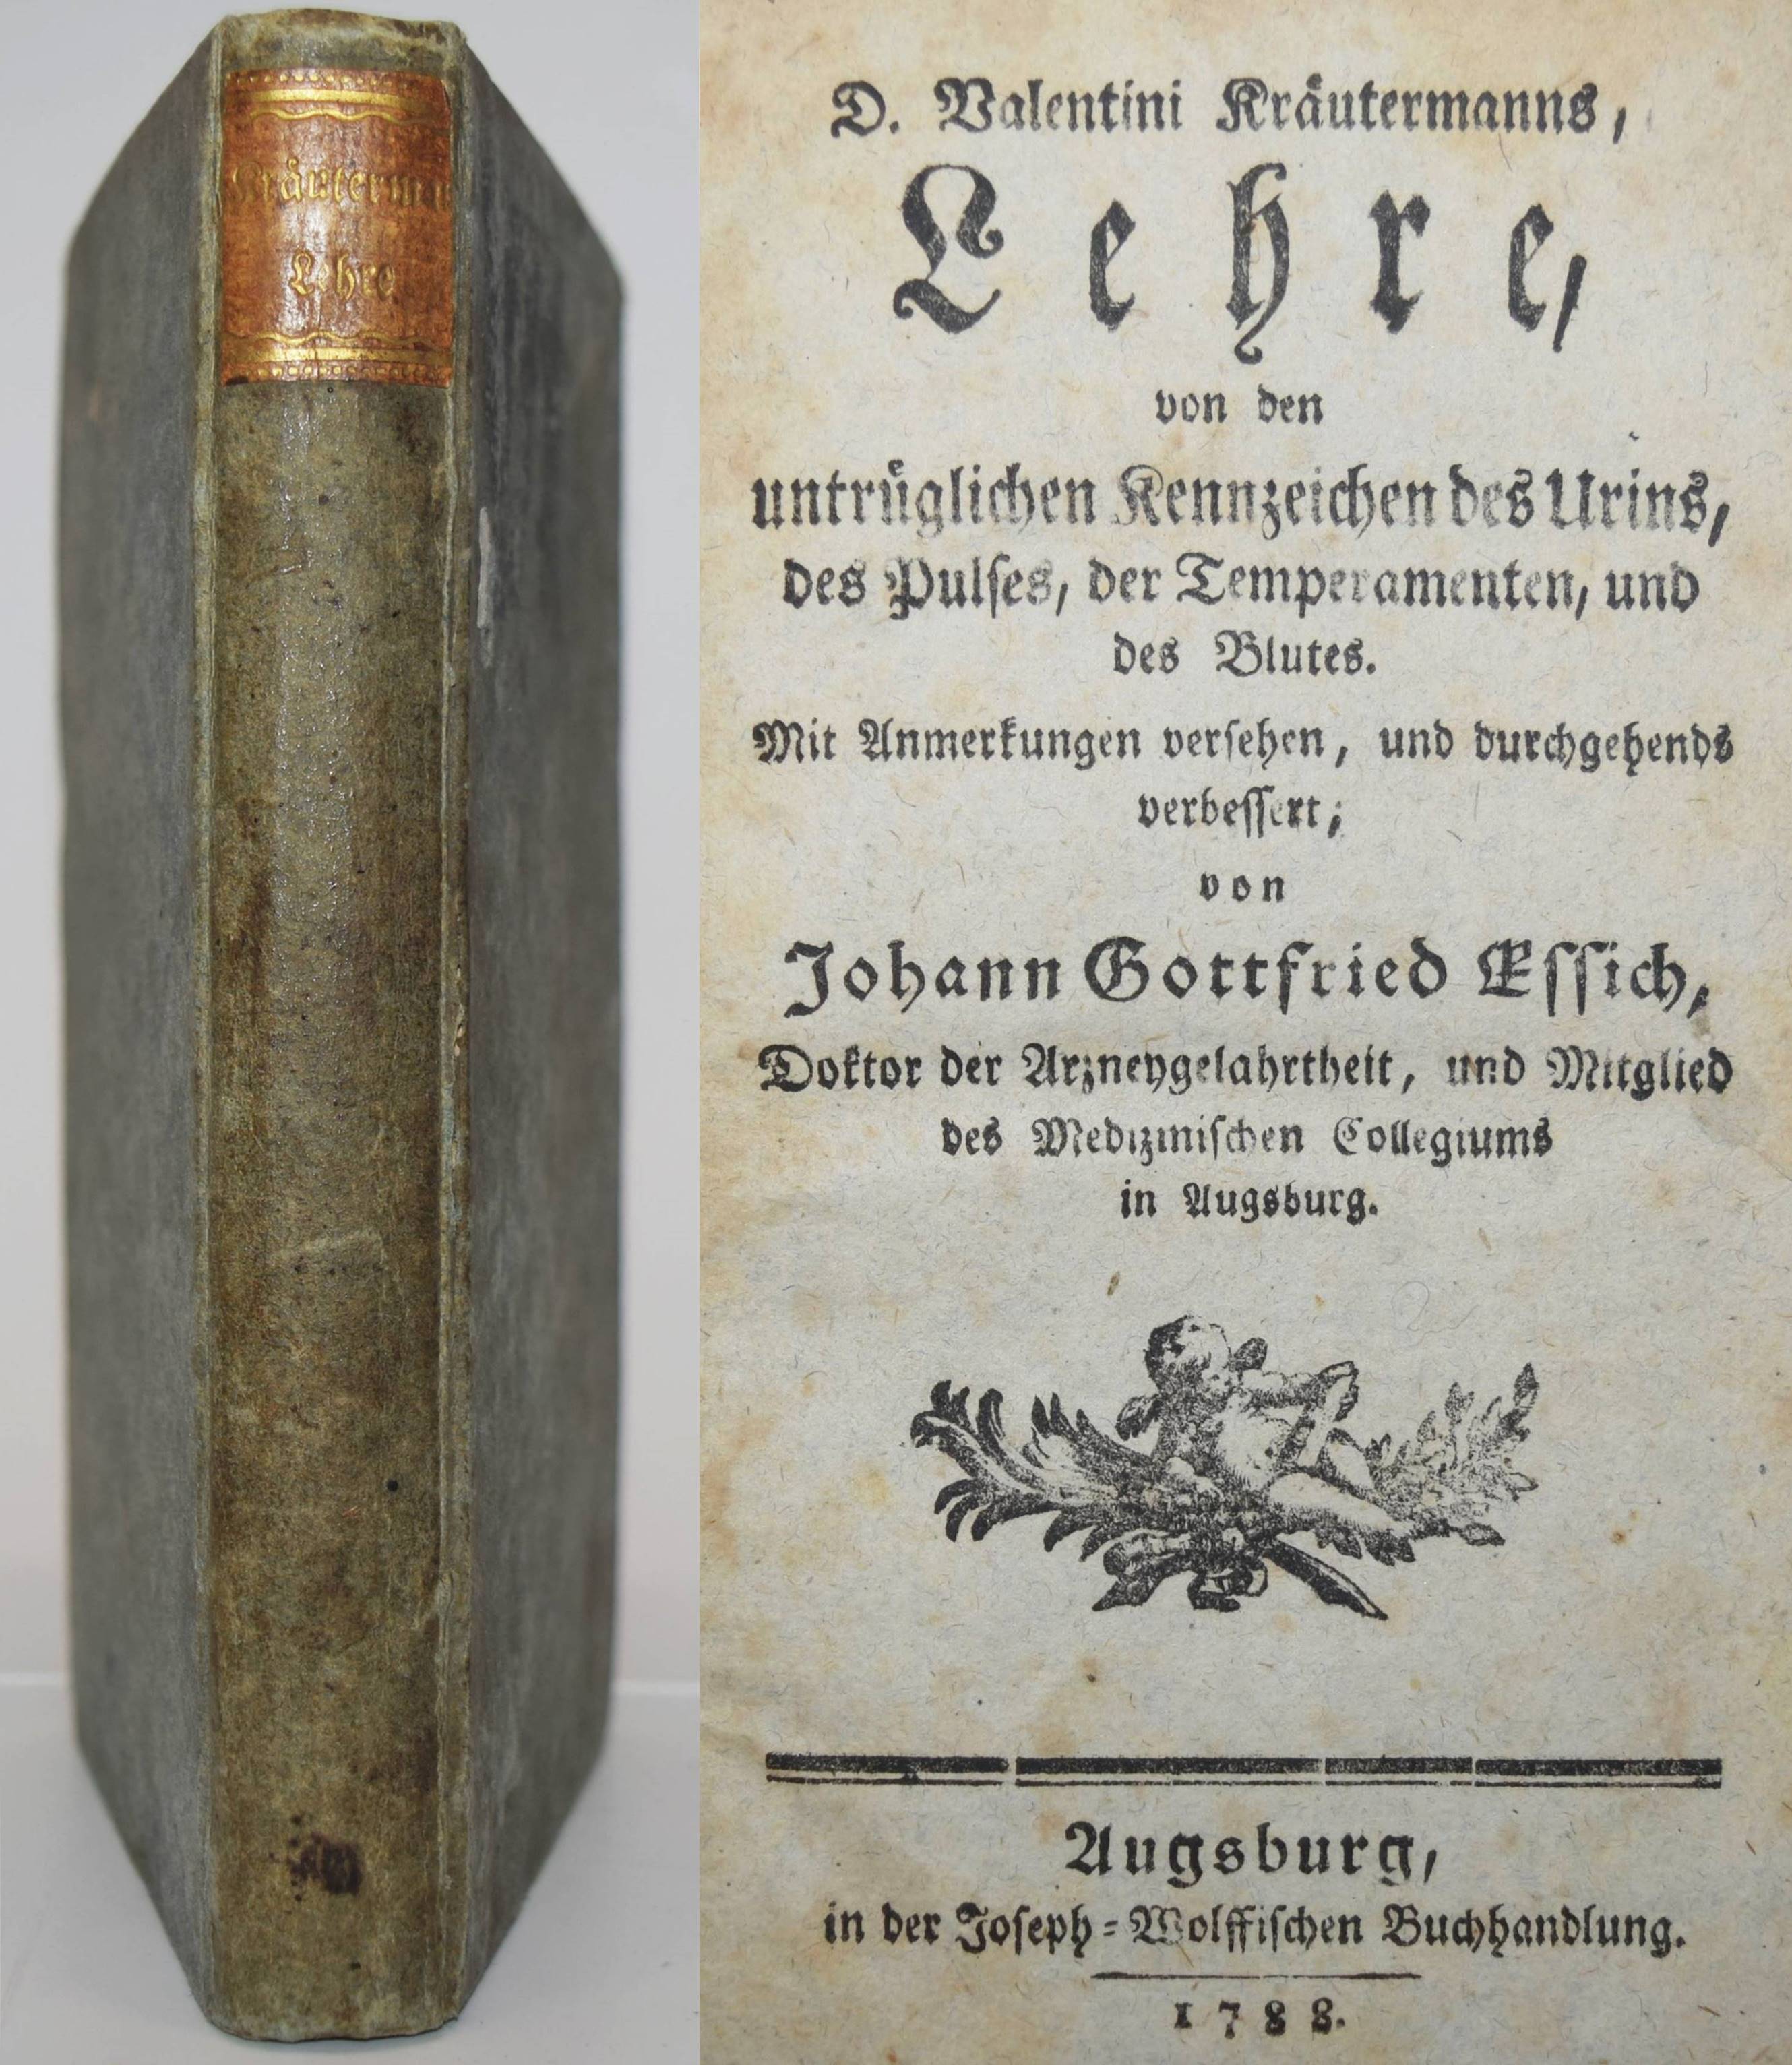 Kräuterman
Lehre
D. Valentini Kräutermanns,
Lehre,
von den
untrüglichen Kennzeichen des Urins,
des Pulſes, der Temperamenten, und
des Blutes.
Mit Anmerkungen verſehen, und durchgehends
verbeſſert;
von
Johann Gottfried Eſſich,
Doktor der Arzneygelahrtheit, und Mitglied
des Mediziniſchen Collegiums
in Augsburg.
Augsburg,
in der Joſeph=Wolffiſchen Buchhandlung.
1788.